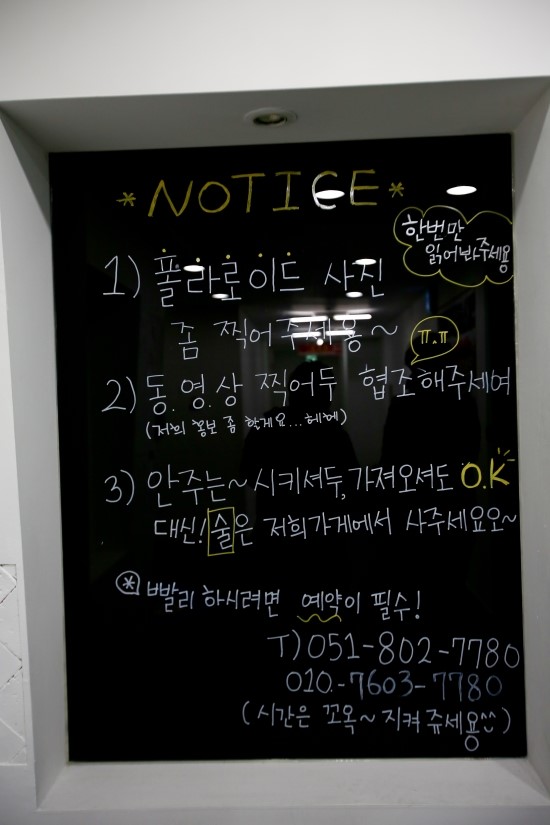 * NOTICE *
한번만
읽어봐주세용
1) 폴라로이드 사진
좀 찍어주세용~
ㅠ.ㅠ
2) 동.영.상 찍어두 협조해주세여
(저희 홍보 좀 할게요...헤헤)
3) 안주는~ 시키셔두, 가져오셔도 O.K
대신! 술은 저희가게에서 사주세요오~
* 빨리 하시려면 예약이 필수!
T) 051-802-7780
010-7603-7780
(시간은 꼬옥~ 지켜쥬세용^^)